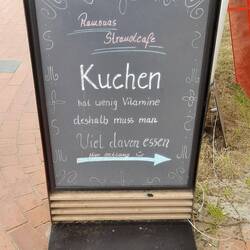 Ramonas
Strandcafe
Kuchen
hat wenig Vitamine
deshalb muss man
Viel davon essen
Hier entlang